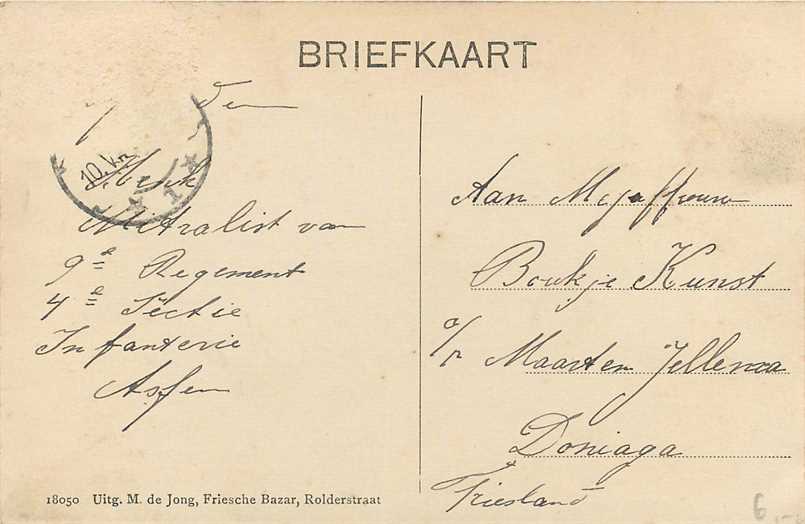 BRIEFKAART
den
10. V.
1
Mitralist van
9e Regement
4e Sectie
Infanterie
Assen
Aan Mejuffrouw
Boukje Kunst
p/a Maarten Jellema
Doniaga
Friesland
18050 Uitg. M. de Jong, Friesche Bazar, Rolderstraat
6